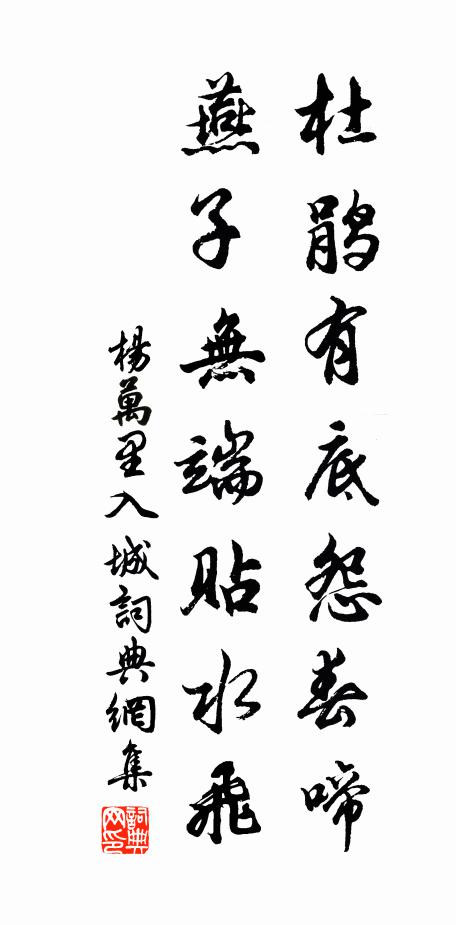 杜鹃有底怨春啼
燕子無端貼水飛
楊萬里入城詞典網集
詞典网印